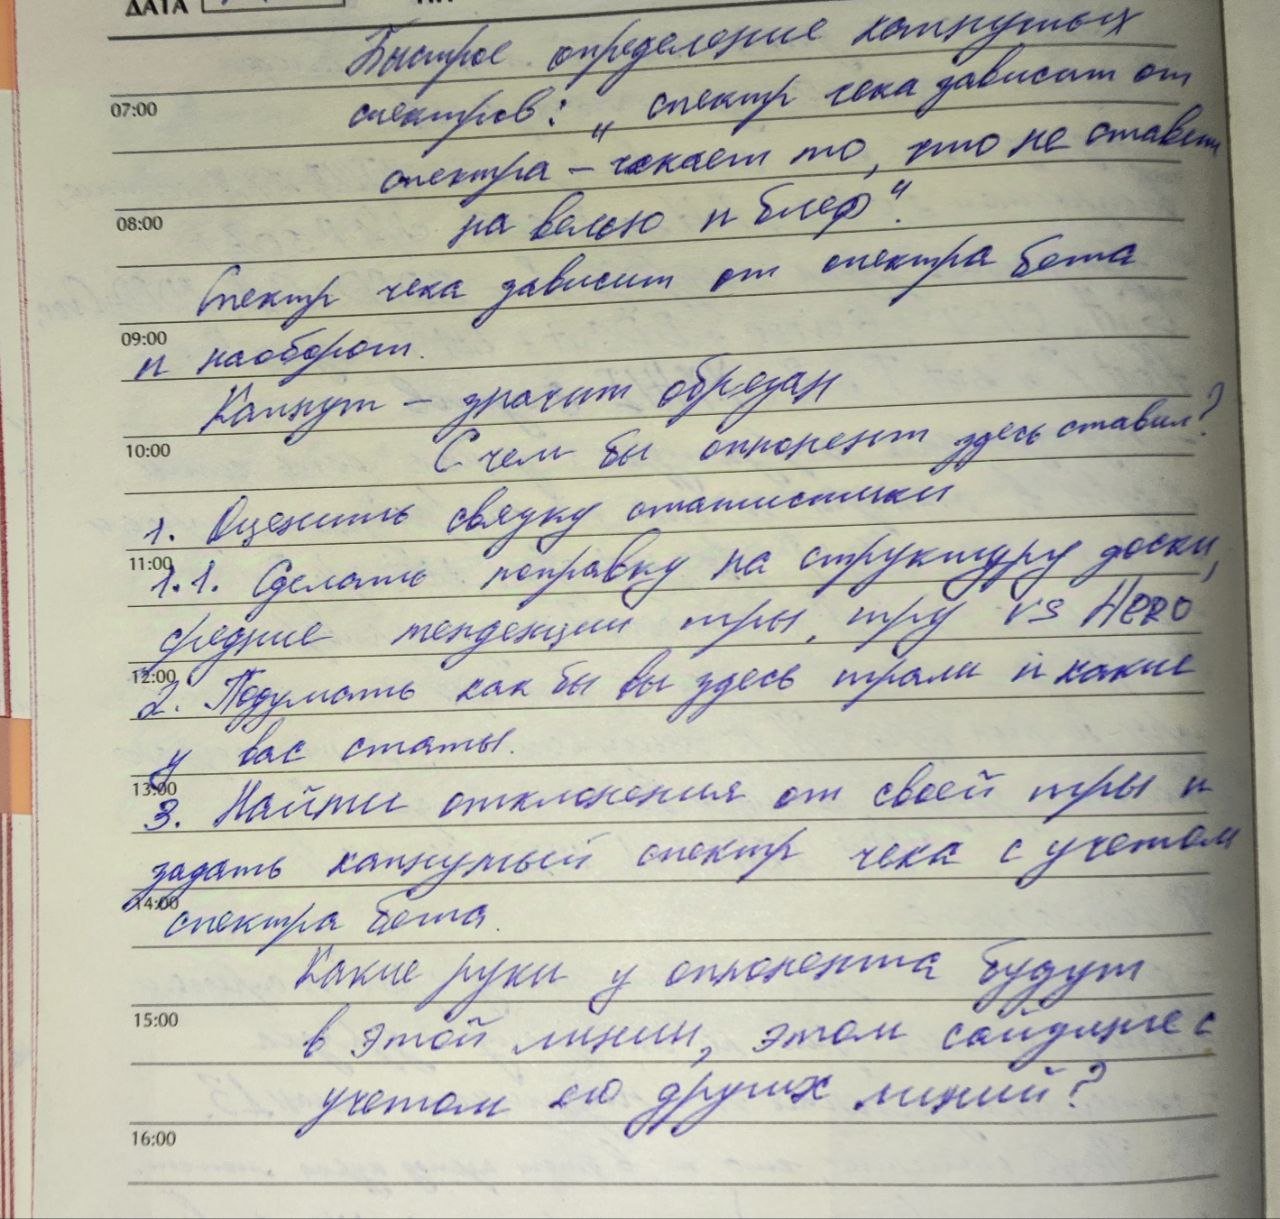 ДАТА
Быстрое определение капнутых
07:00
спектров: „ спектр чека зависит от
спектра – чекает то, что не ставит
08:00
на велью и блеф“.
Спектр чека зависит от спектра бета
09:00
и наоборот.
Капнут – значит обрезан
10:00
С чем бы оппонент здесь ставил?
1. Оценить связку статистики
11:00
1.1. Сделать поправку на структуру доски,
средние тенденции игры, игру vs HERO
12:00
2. Подумать как бы вы здесь играли и какие
у вас статы.
13:00
3. Найти отклонения от своей игры и
задать капнутый спектр чека с учетом
14:00
спектра бета.
Какие руки у оппонента будут
15:00
в этой линии, этом сайдинге с
учетом его других линий?
16:00